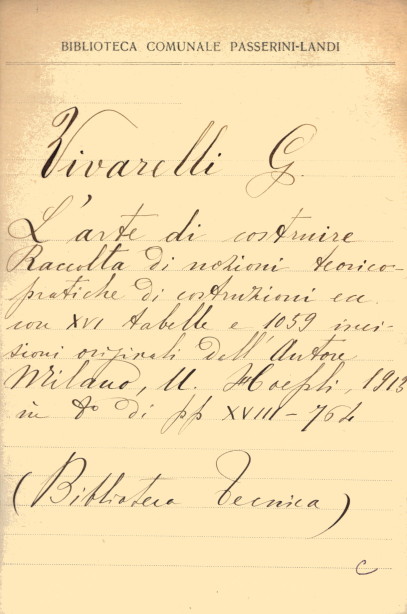 BIBLIOTECA COMUNALE PASSERINI-LANDI
Vivarelli G.
L'arte di costruire
Raccolta di nozioni teorico-
pratiche di costruzioni ecc.
con XVI tabelle e 1059 inci-
sioni originali dell'Autore
Milano, U. Hoepli, 1913
in 8° di pp XVIII-764
(Biblioteca Tecnica)
C